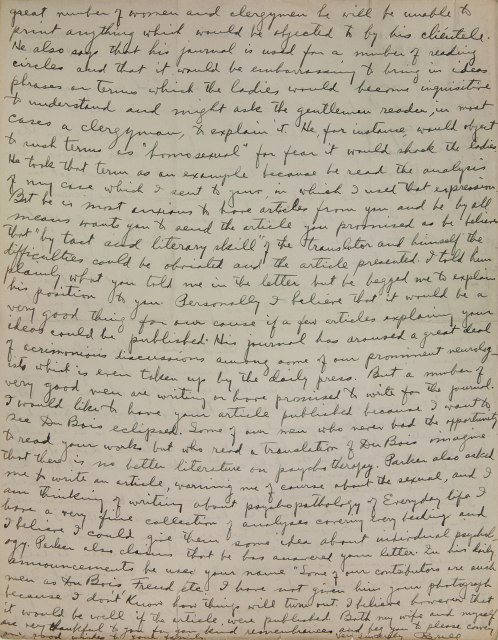 great number of women and clergymen he will be unable to
print anything which would be objected to by his clientele.
He also says that his journal is used for a number of reading
circles and that it would be embarrassing to bring in ideas
phrases or terms which the ladies would become inquisitive
to understand and might ask the gentleman reader, in most
cases a clergyman, to explain it. He, for instance, would object
to such terms as "homosexual" for fear it would shock the ladies
He took that term as an example because he read the analysis
of my case which I sent to in which I used that expression
But he is most anxious to have articles from you and he by all
means wants you to send the article you promised as he believes
that "by tact and literary skill" of the translator and himself the
difficulties could be obviated and the article presented. I told him
plainly what you told me in the letter but he begged me to explain
his position to you. Personally I believe that it would be a
very good thing for our cause if a few articles explaining your
ideas could be published. His journal has aroused a great deal
of acrimonious discussions among some of our prominent neurolog-
ists which is even taken up by the daily press. But a number of
very good men are writing or have promised to write for the journal.
I would like to have your article published because I want to
see Du Bois eclipsed. Some of our men who never had the opportunity
to read your works but who read a translation of Du Bois imagine
that there is no better literature on psychotherapy. Parker also asked
me to write an article, warning me of course about the sexual, and I
am thinking of writing about psychopathology of Everyday life. I
have a very fine collection of analyses covering every and
I believe I could give them some idea about individual psychol-
ogy. Parker also claims that he has answered your letter. In his
announcements he uses your name "Some of our contributors are such
men as Du Bois, Freud etc. I have not given him your photograph
because I don't know how things will turn out. I believe however that
it would be well if the article were published. Both my wife and myself
are very thankful to you for your kind remembrances and beg you to please convey
our good wishes